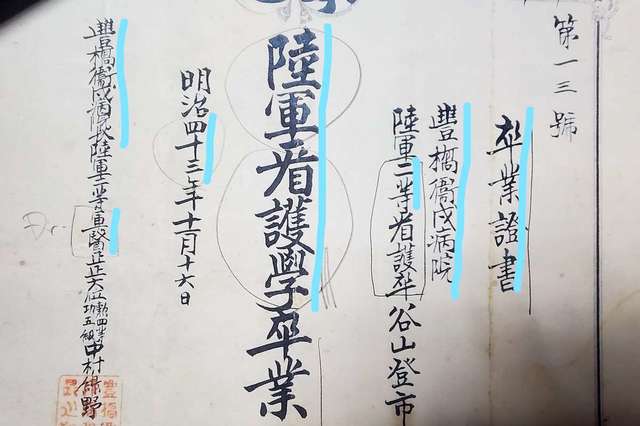 第一三號
卒業證書
豐橋衞戍病院
陸軍二等看護卒谷山登市
陸軍看護學卒業
明治四十三年十二月十六日
豐橋衞戍病院長陸軍二等軍醫正正六位勲四等功五級中村緑野
Dr.